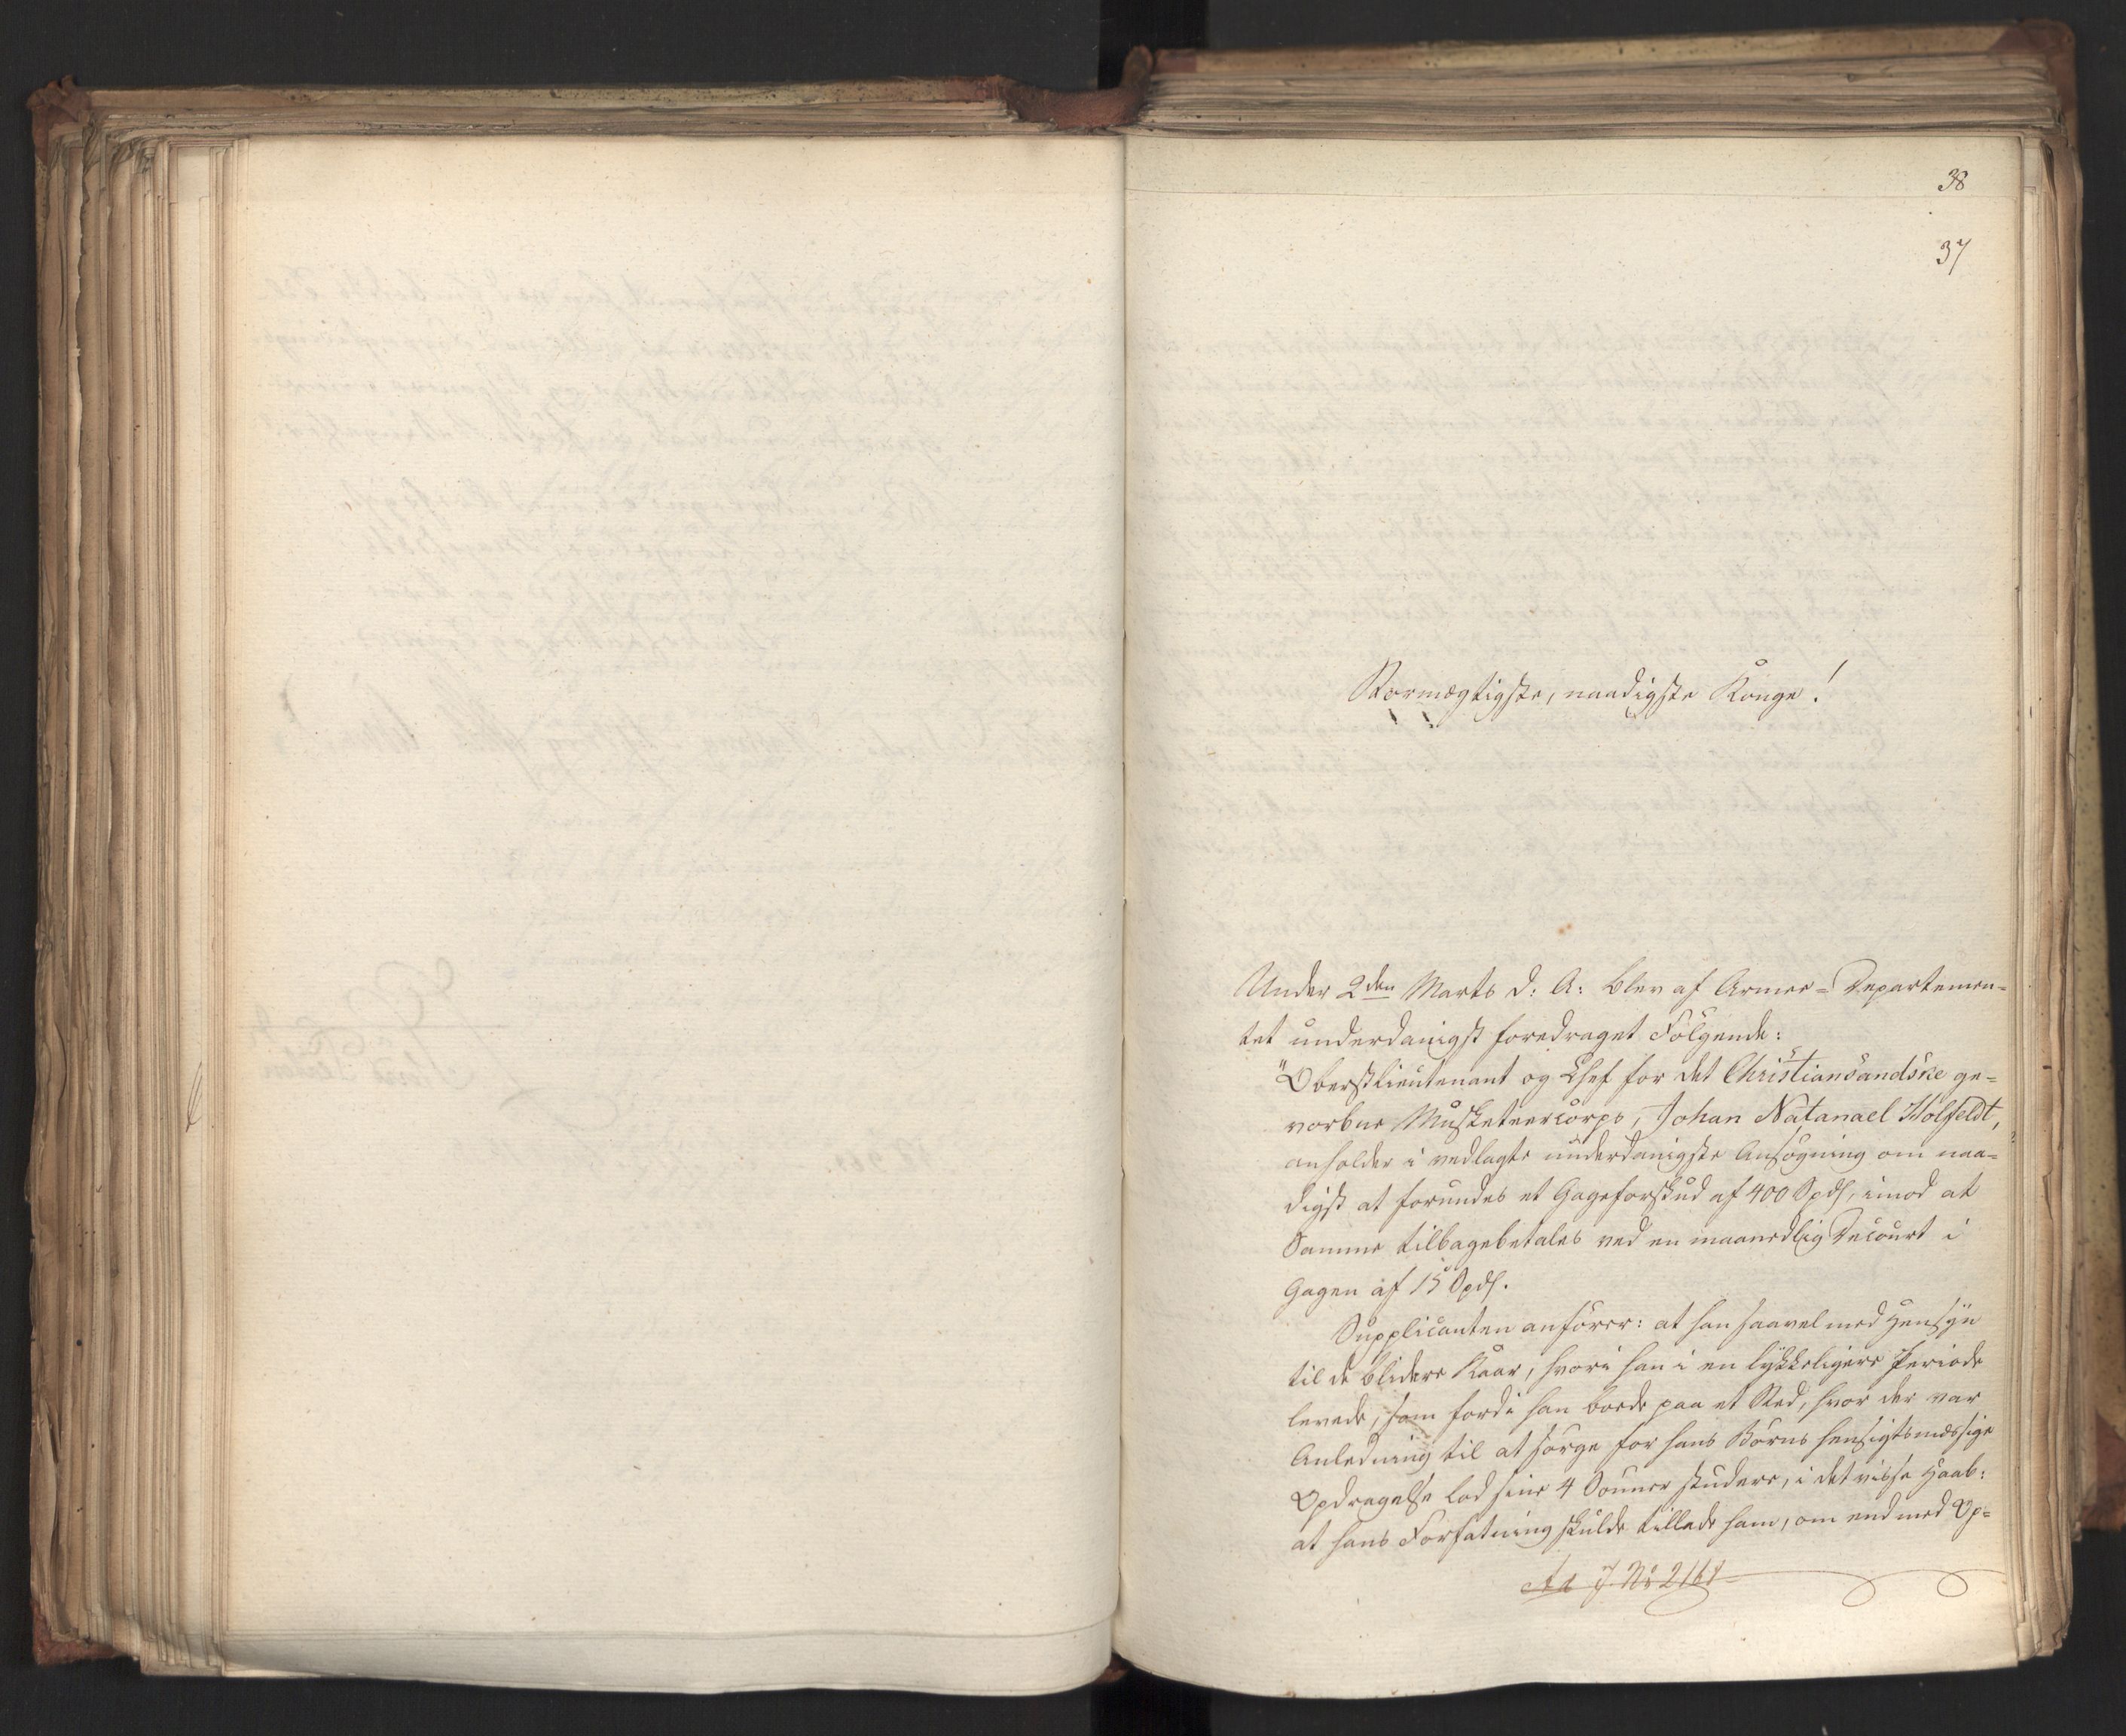 38
37
Stormægtigste, naadigste Konge!
Under 2den Marts d: A: blev af Armee=Departemen=
tet underdanigst foredraget Følgende:
"Oberstlieutenant og Chef for det Christiansandske ge=
vorbne Musketeercorps, Johan Natanael Holfeldt,
anholder i vedlagte underdanigste Ansøgning om naa=
digst at forundes et Gageforskud af 400 Spds, imod at
Samme tilbagebetales ved en maanedlig Decourt i
Gagen af 15 Spds.
Supplicanten anfører: at han saavel med Hensyn
til de blidere Kaar, hvori han i en lykkeligere Periode
levede, som fordi han boede paa et Sted, hvor der var
Anledning til at sørge for hans Børns hensigtsmæssige
Opdragelse lod sine 4 Sønner studere, i det visse Haab:
at hans Forfatning skulde tillade ham, om end med Op=
Ad J. No 2168